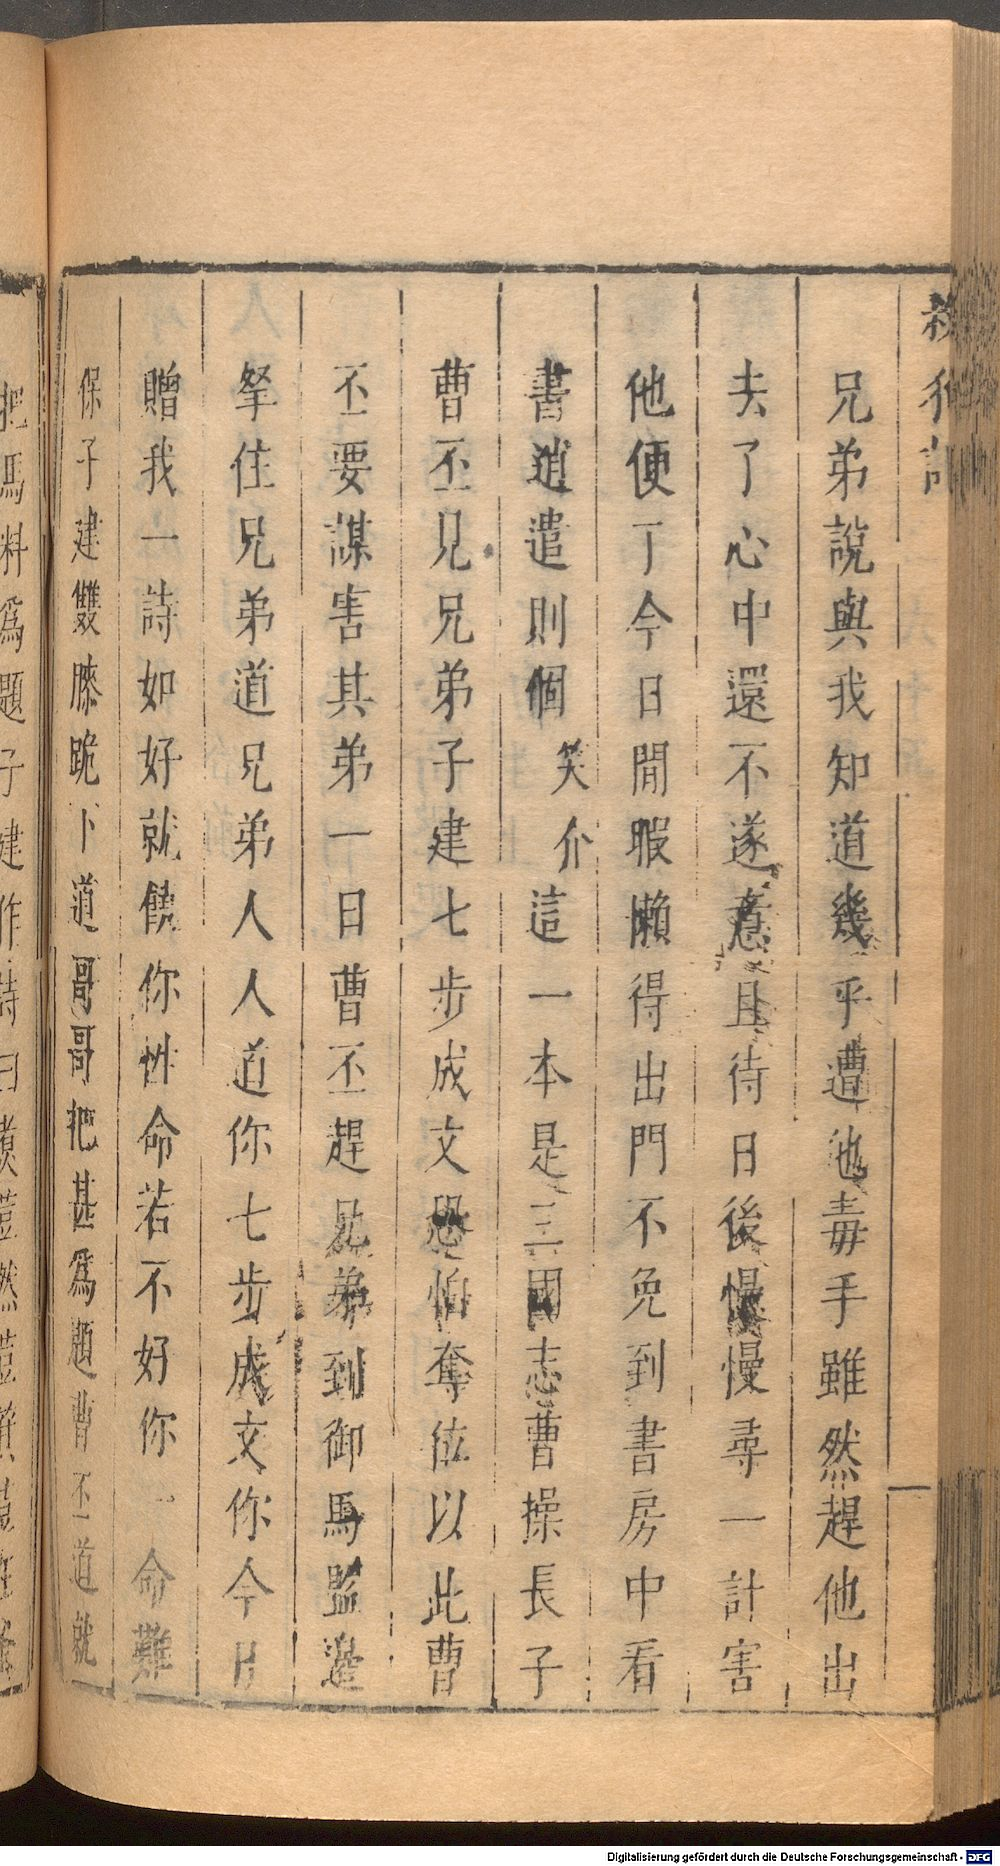 殺狗記
兄弟說與我知道幾乎遭他毒手雖然趕他出
去了心中還不遂意且待日後慢慢尋一計害
他便了今日閒暇懶得出門不免到書房中看
書逍遣則個 笑介 這一本是三國志曹操長子
曹丕見兄弟子建七步成文恐怕奪位以此曹
丕要謀害其弟一日曹丕趕兄弟到御馬監邊
拏住兄弟道兄弟人人道你七步成文你今日
贈我一詩如好就饒你性命若不好你一命難
保子建雙膝跪下道哥哥把甚爲題曹丕道就
把馬料爲題子建作詩曰煮荳然荳萁荳在釜
Digitalisierung gefördert durch die Deutsche Forschungsgemeinschaft - DFG